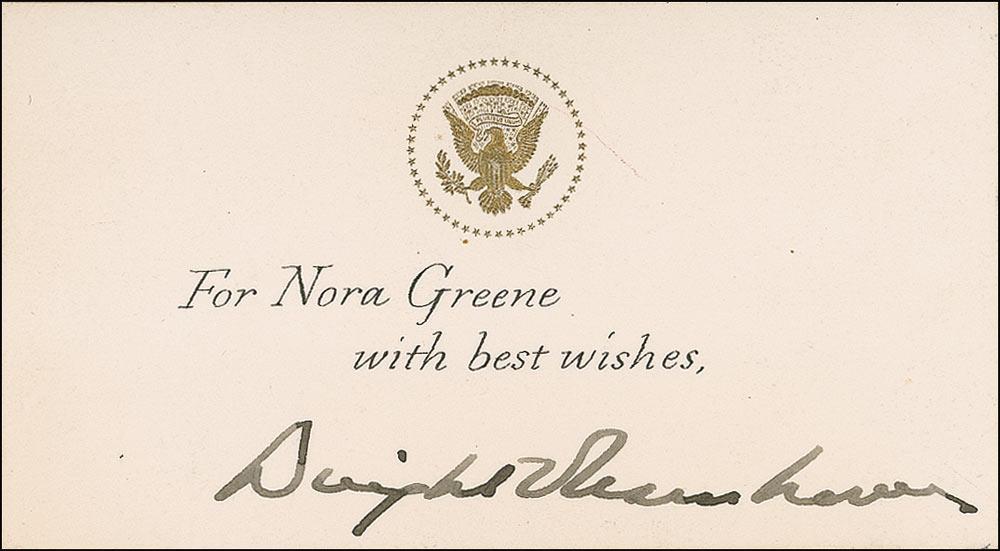 For Nora Greene
with best wishes,
Dwight D Eisenhower